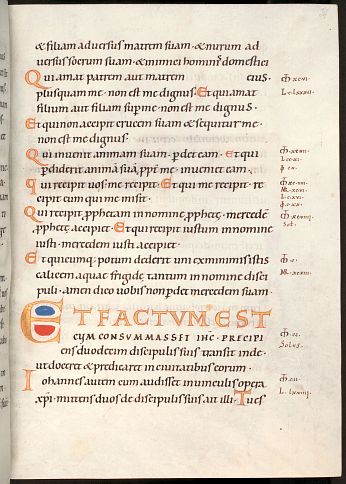 & filiam adversus matrem suam · & nurum ad
versus socrum suam · & inimici homin' domestici
Qui amat patrem aut matrem eius ·
plusquam me · non est me dignus · Et qui amat
filium aut filiam sup me · non est me dignus ·
Et qui non accipit crucem suam & sequitur me ·
non est me dignus ·
Qui invenit animam suam · pdet eam · Et qui
pdiderit animā suā, ppt me · inveniet eam ·
Qui recipit vos · me recipit · Et qui me recipit · re
cipit eum qui me misit ·
Qui recipit pphetam in nomine pphetę · mercedē
pphetę accipiet · Et qui recipit iustum in nomine
iusti · mercedem iusti accipiet ·
Et quicumq; potum dederit uni ex minimis istis
calicem aquae frigidę tantum in nomine disci
puli · amen dico vobis non pdet mercedem suam ·
ET FACTUM EST
CUM CONSUMMASSET IHC · PRECIPI
ens duodecim discipulis suis · transiit inde ·
ut doceret & predicaret in civitatibus eorum ·
Iohannes autem cum audisset in vinculis opera
xpi · mittens duos de discipulis suis · ait illi · Tu es